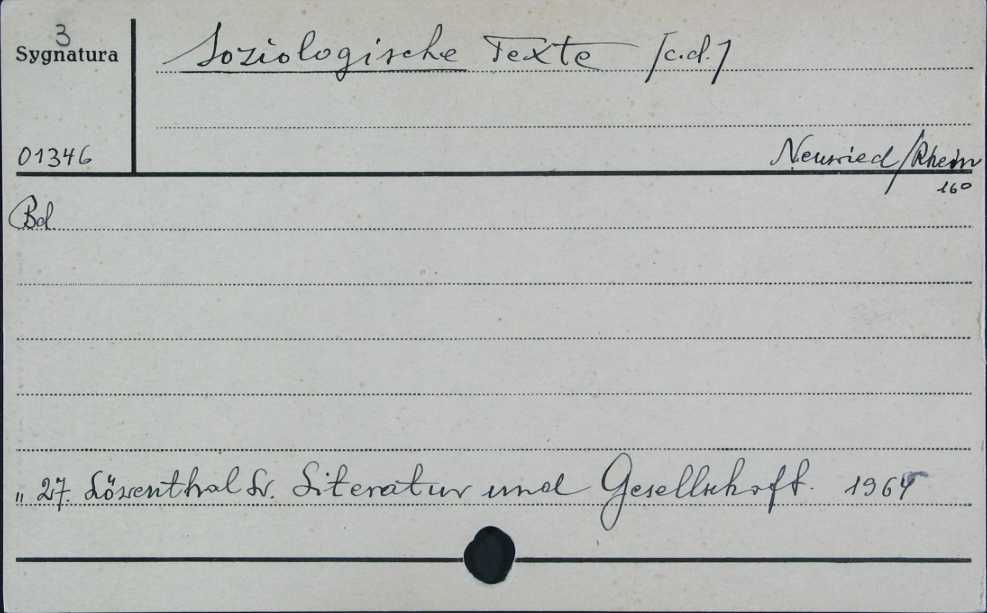 3
Sygnatura
Soziologische Texte [c.d.]
01346
Neuwied/Rhein
16°
Bd
„ 27. Löwenthal L. Literatur und Gesellschaft. 1964